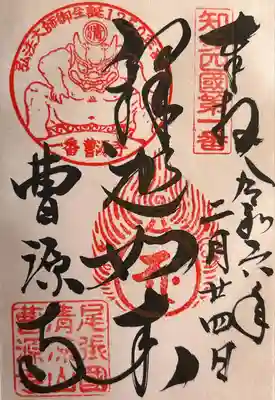 知多四國第一番
奉拝 令和六年
二月廿四日
弘法大師御生誕1250年
一番曹源寺
釋迦如来
曹源寺
尾張國
清涼山
曹源寺